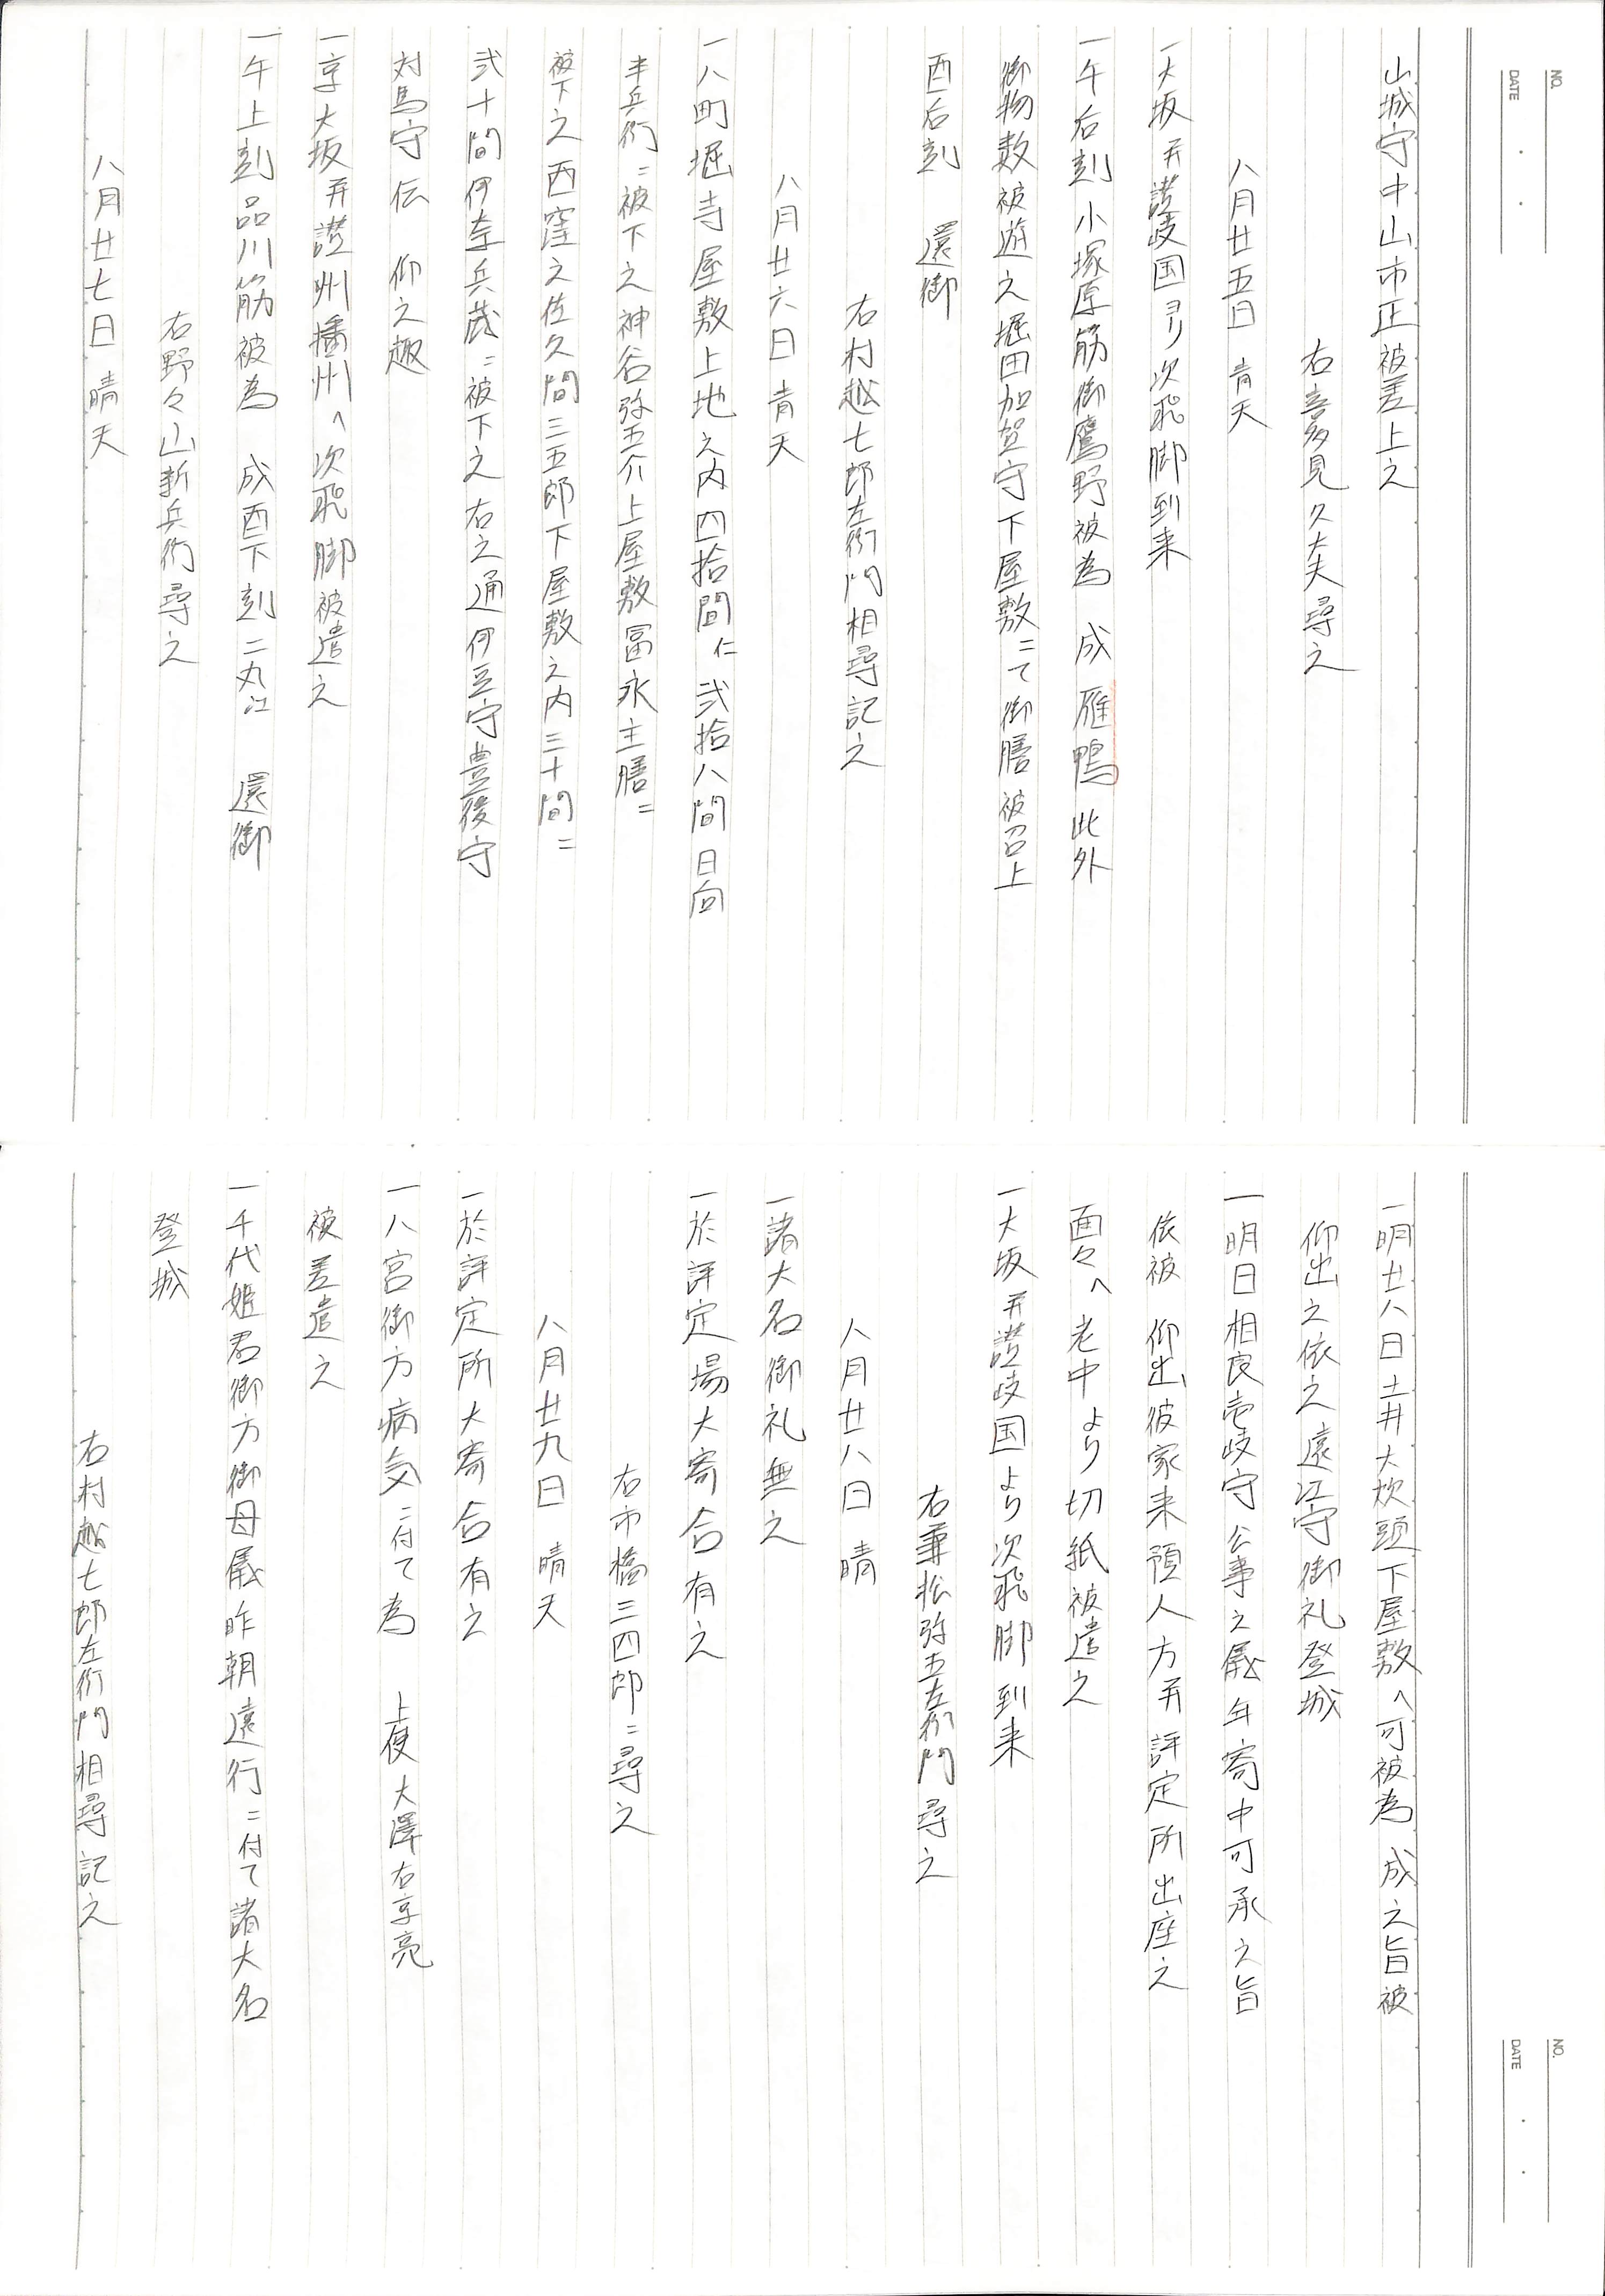 NO.
DATE
山城守中山市正被差上之
右喜多見久太夫尋之
八月廿五日 青天
一大坂并讃岐国ヨリ次飛脚到来
一午后刻小塚原筋御鷹野被為 成雁鴨此外
御物数被遊之堀田加賀守下屋敷ニて御膳被召上
酉后刻 還御
右村越七郎左衛門相尋記之
八月廿六日 青天
一八町堀寺屋敷上地之内四拾間仁弐拾八間日向
半兵衛ニ被下之神谷弥五介上屋敷冨永主膳ニ
被下之西窪之佐久間三五郎下屋敷之内三十間ニ
弐十間伊奈兵蔵ニ被下之右之通伊豆守豊後守
対馬守伝 仰之趣
一京大坂并讃州播州へ次飛脚被遣之
一午上刻品川筋被為 成酉下刻二丸江 還御
右野々山新兵衛尋之
八月廿七日 晴天
NO.
DATE
一明廿八日土井大炊頭下屋敷へ可被為 成之旨被
仰出之依之遠江守御礼登城
一明日相良壱岐守公事之儀年寄中可承之旨
依被 仰出彼家来預人方并評定所出座之
面々へ老中より切紙被遣之
一大坂并讃岐国より次飛脚到来
右兼松弥五左衛門尋之
八月廿八日 晴
一諸大名御礼無之
一於評定場大寄合有之
右市橋三四郎ニ尋之
八月廿九日 晴天
一於評定所大寄合有之
一八宮御方病気ニ付て為 上使大澤右京亮
被差遣之
一千代姫君御方御母儀昨朝遠行ニ付て諸大名
登城
右村越七郎左衛門相尋記之